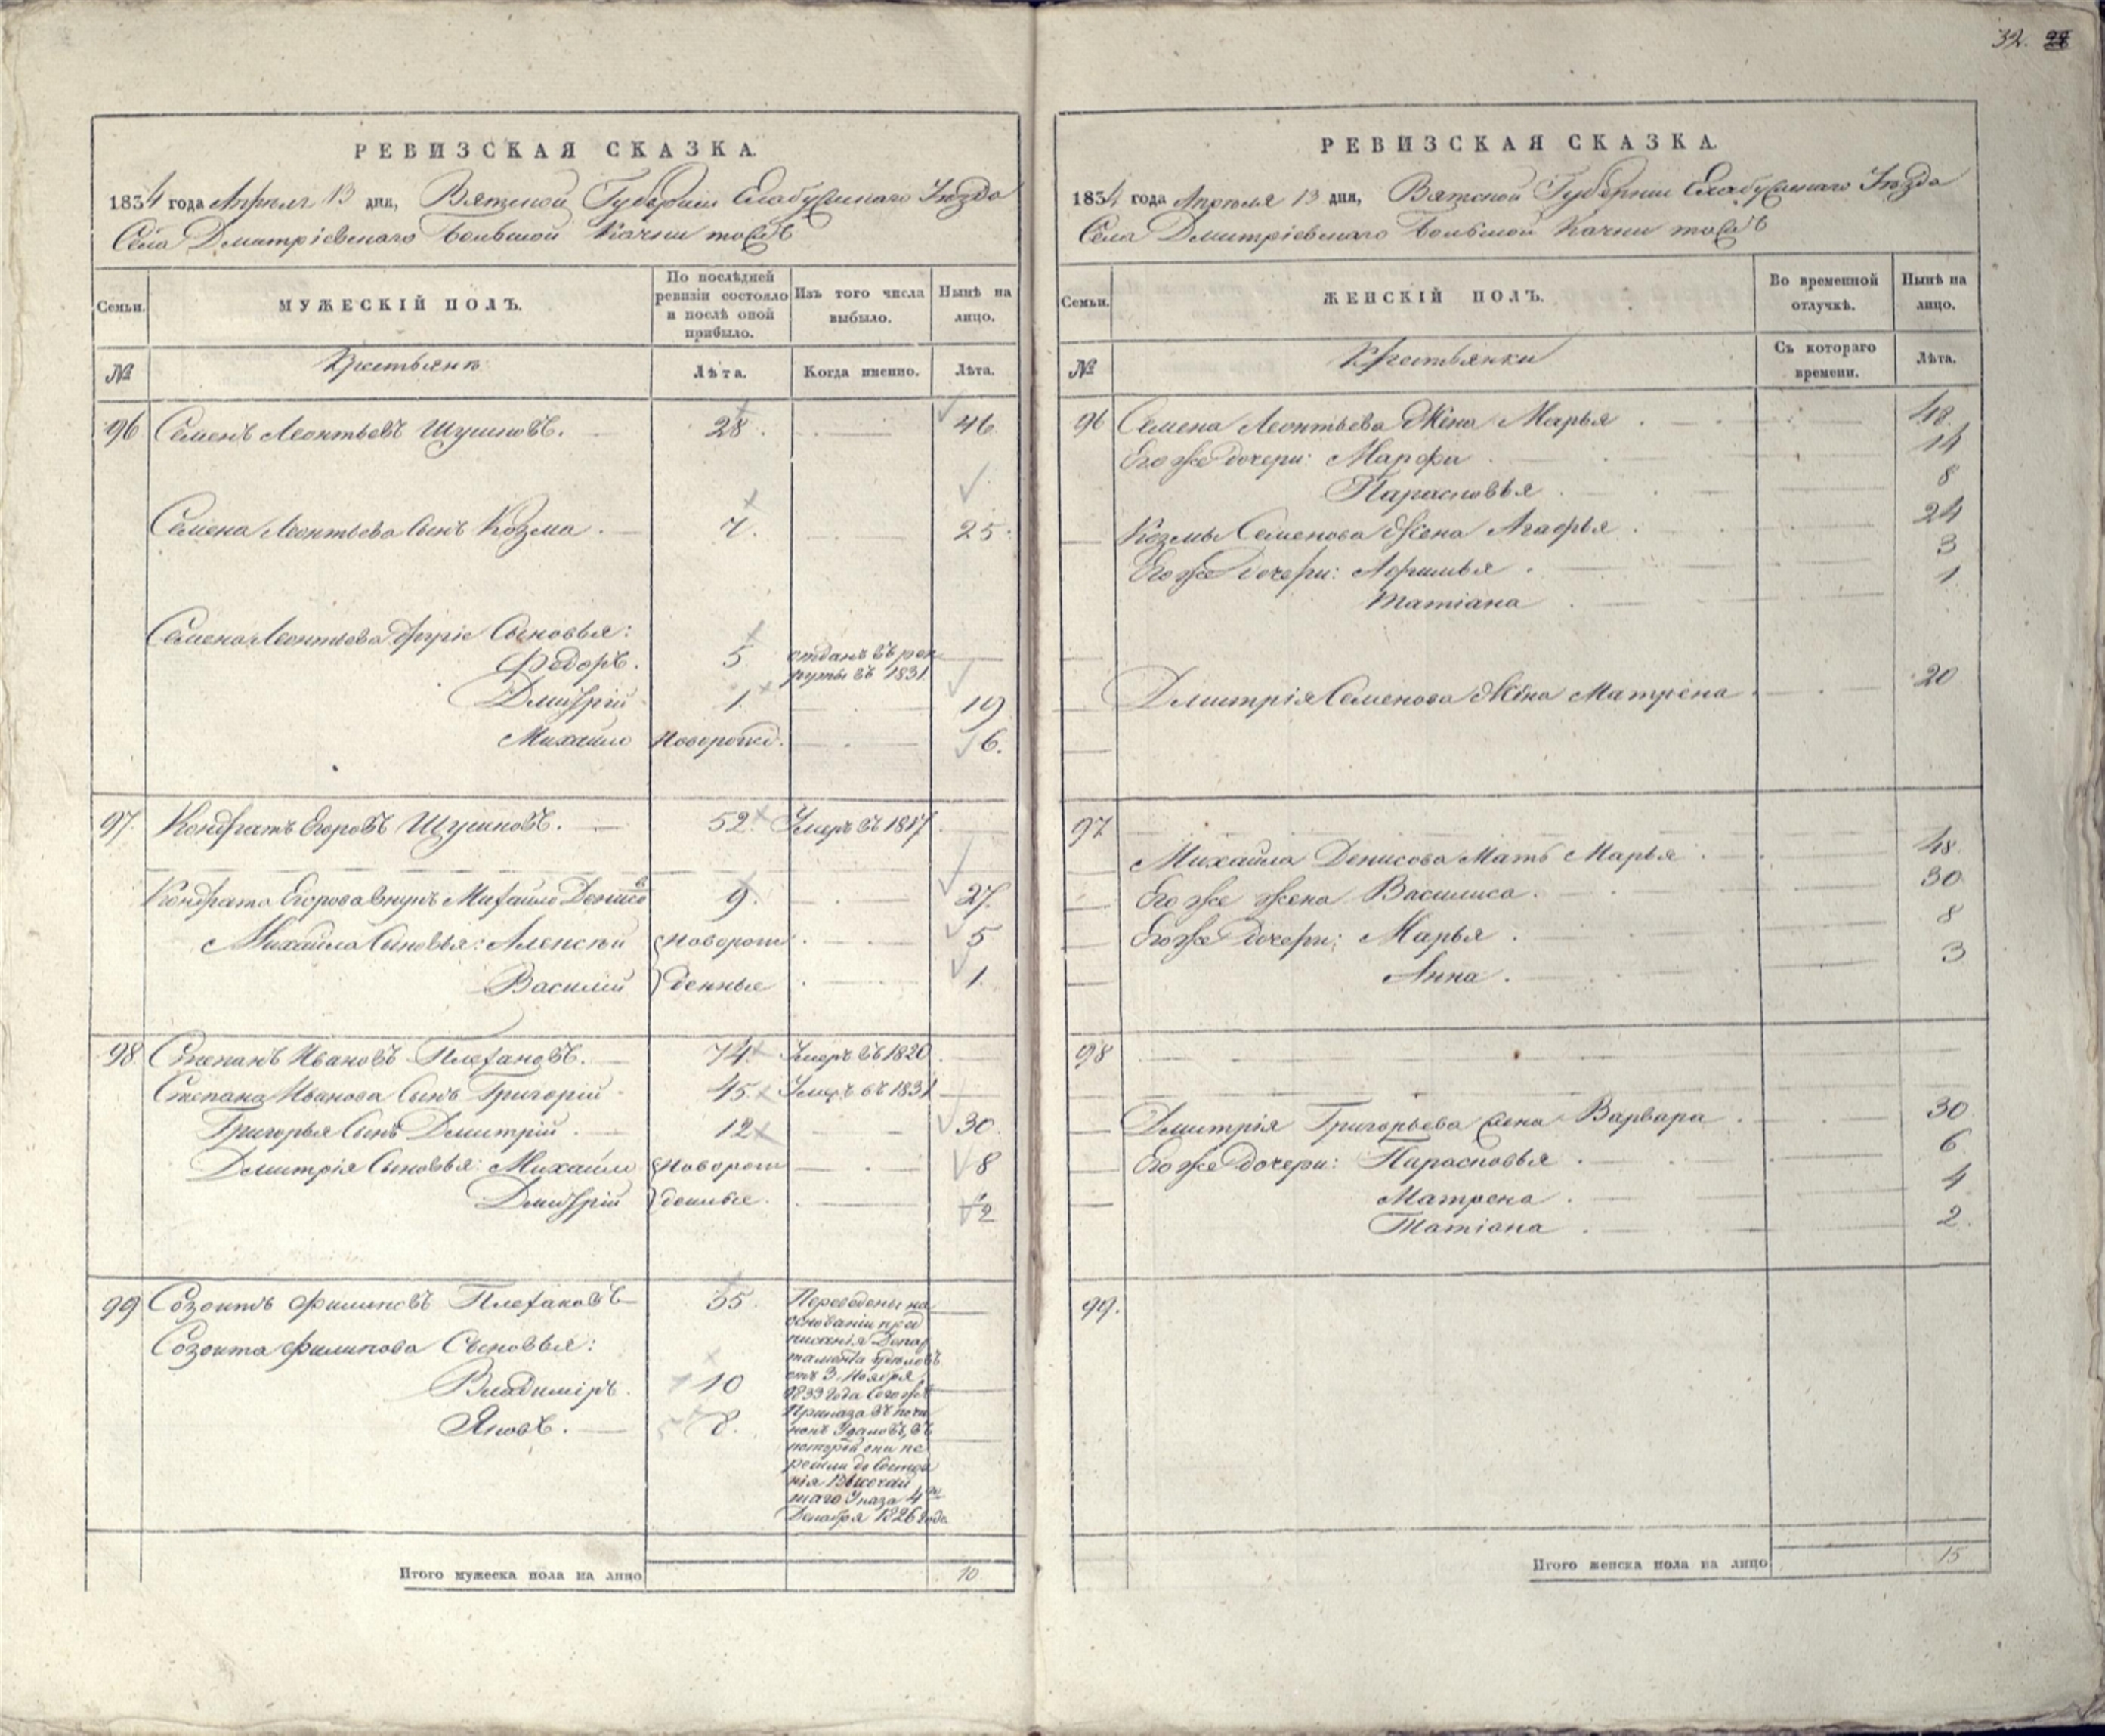 32. 28
РЕВИЗСКАЯ СКАЗКА.
1834 года Апреля 13 дня, Вятской Губернии Елабужскаго Уѣзда
Села Дмитріевскаго Большой Качки тожъ
Семьи.
МУЖЕСКІЙ ПОЛЪ.
По послѣдней ревизіи состояло и послѣ оной прибыло.
Изъ того числа выбыло.
Нынѣ на лицо.
№
Крестьяне
Лѣта.
Когда именно.
Лѣта.
96 Семенъ Леонтьевъ 28. 46.
Семена Леонтьева Сынъ Козма. 7. 25.
Семена Леонтьева другіе Сыновья:
Федоръ. 5 отданъ въ рекруты въ 1831.
Дмитрій 1. 19
Михайло Новорожд. 6.
97. Кондратъ Егоровъ 52. Умеръ въ 1817.
Кондрата Егорова внукъ Михайло Денисовъ 9. 27.
Михайла Сыновья: Алексѣй Новорож 5
Василій денные 1.
98. Степанъ Ивановъ Плехановъ. 74. Умеръ въ 1820.
Степана Иванова Сынъ Григорій 45. Умеръ въ 1831
Григорья Сынъ Дмитрій. 12 30.
Дмитрія Сыновья: Михайло Новорож 8
Дмитрій денные. 2
99 Созонтъ Филиповъ Плехановъ 35. Переведены на
основаніи пред
Созонта Филипова Сыновья: писанія Депар
тамента Удѣловъ
Владиміръ. 10 отъ 3. Ноября
1833 года
Яковъ. 8. Приказа въ почи
нокъ въ
который они пе
решли до Состоя
нія Высочай
шаго Указа 4го
Декабря 1826 года.
Итого мужеска пола на лицо 10.
РЕВИЗСКАЯ СКАЗКА.
1834 года Апреля 13 дня, Вятской Губерніи Елабужскаго Уѣзда
Села Дмитріевскаго Большой Качки тожъ
Семьи.
ЖЕНСКІЙ ПОЛЪ.
Во временной отлучкѣ.
Нынѣ на лицо.
№
Крестьянки
Съ котораго времени.
Лѣта.
96 Семена Леонтьева Жена Марья 48.
Его же дочери: Марфа 14
Парасковья 8
Козмы Семенова Жена Агафья 24
Его же дочери: Афимья 3
Татіана 1
Дмитрія Семенова Жена Матрена 20
97
Михайла Денисова Мать Марья 48.
Его же жена Василиса. 30
Его же дочери: Марья 8
Анна. 3
98
Дмитрія Григорьева жена Варвара 30
Его же дочери: Парасковья 6
Матрена 4
Татіана 2.
99.
Итого женска пола на лицо 15